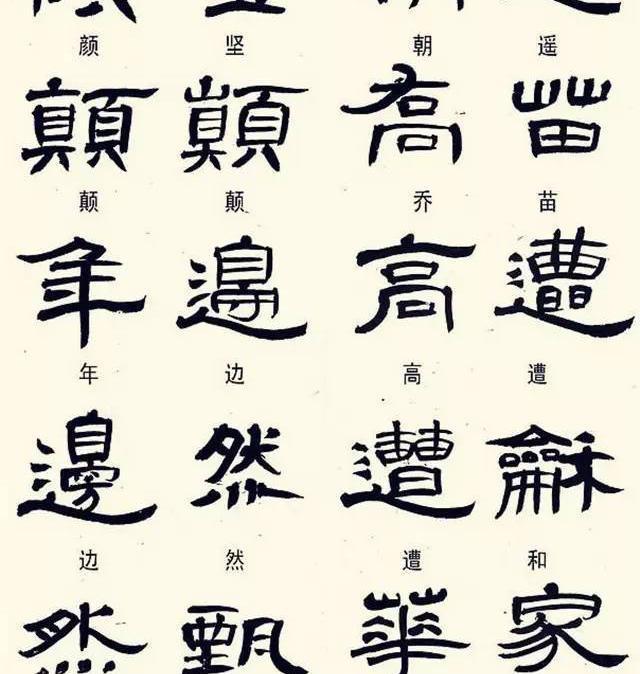 颜 坚 朝 遥
顛 顛 喬 苗
颠 颠 乔 苗
年 邊 高 遭
年 边 高 遭
邊 然 遭 龢
边 然 遭 和
然 甄 華 家